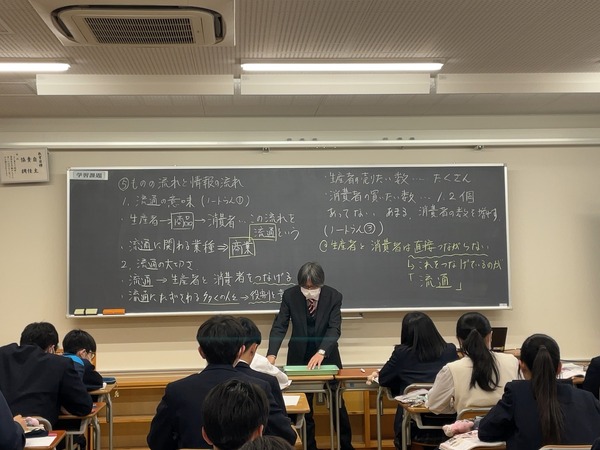 学習課題
⑤ものの流れと情報の流れ
1. 流通の意味 (ノートらん①)
・生産者→商品→消費者… この流れを
流通という
・流通に関わる業種⇒商業
2. 流通の大切さ
・流通→生産者と消費者をつなげる
・流通にたずさわる多くの人を→役割
・生産者の売りたい数… たくさん
・消費者の買いたい数… 1、2個
あってない、あまる、消費者の考えを増やす
(ノートらん③)
生産者と消費者は直接つながらない
これをつなげているのが
「流通」